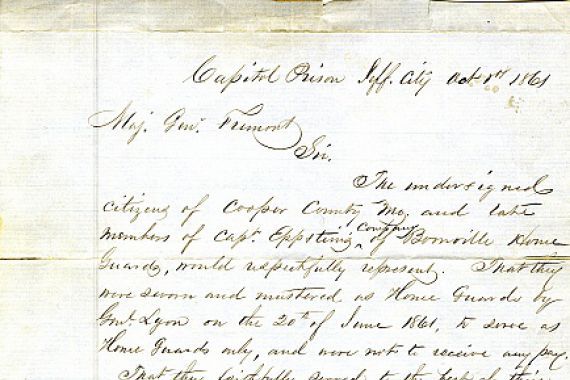 Capitol Prison Jeff. City Oct 1st 1861
Maj. Genl. Fremont
Sir.
The undersigned
citizens of Cooper County Mo. and late
members of Capt. Eppstein's company of Boonville Home
Guards, would respectfully represent. That they
were sworn and mustered as Home Guards by
Genl. Lyon on the 20th of June 1861, to serve as
Home Guards only, and were not to receive any pay.
That they faithfully served to the best of their